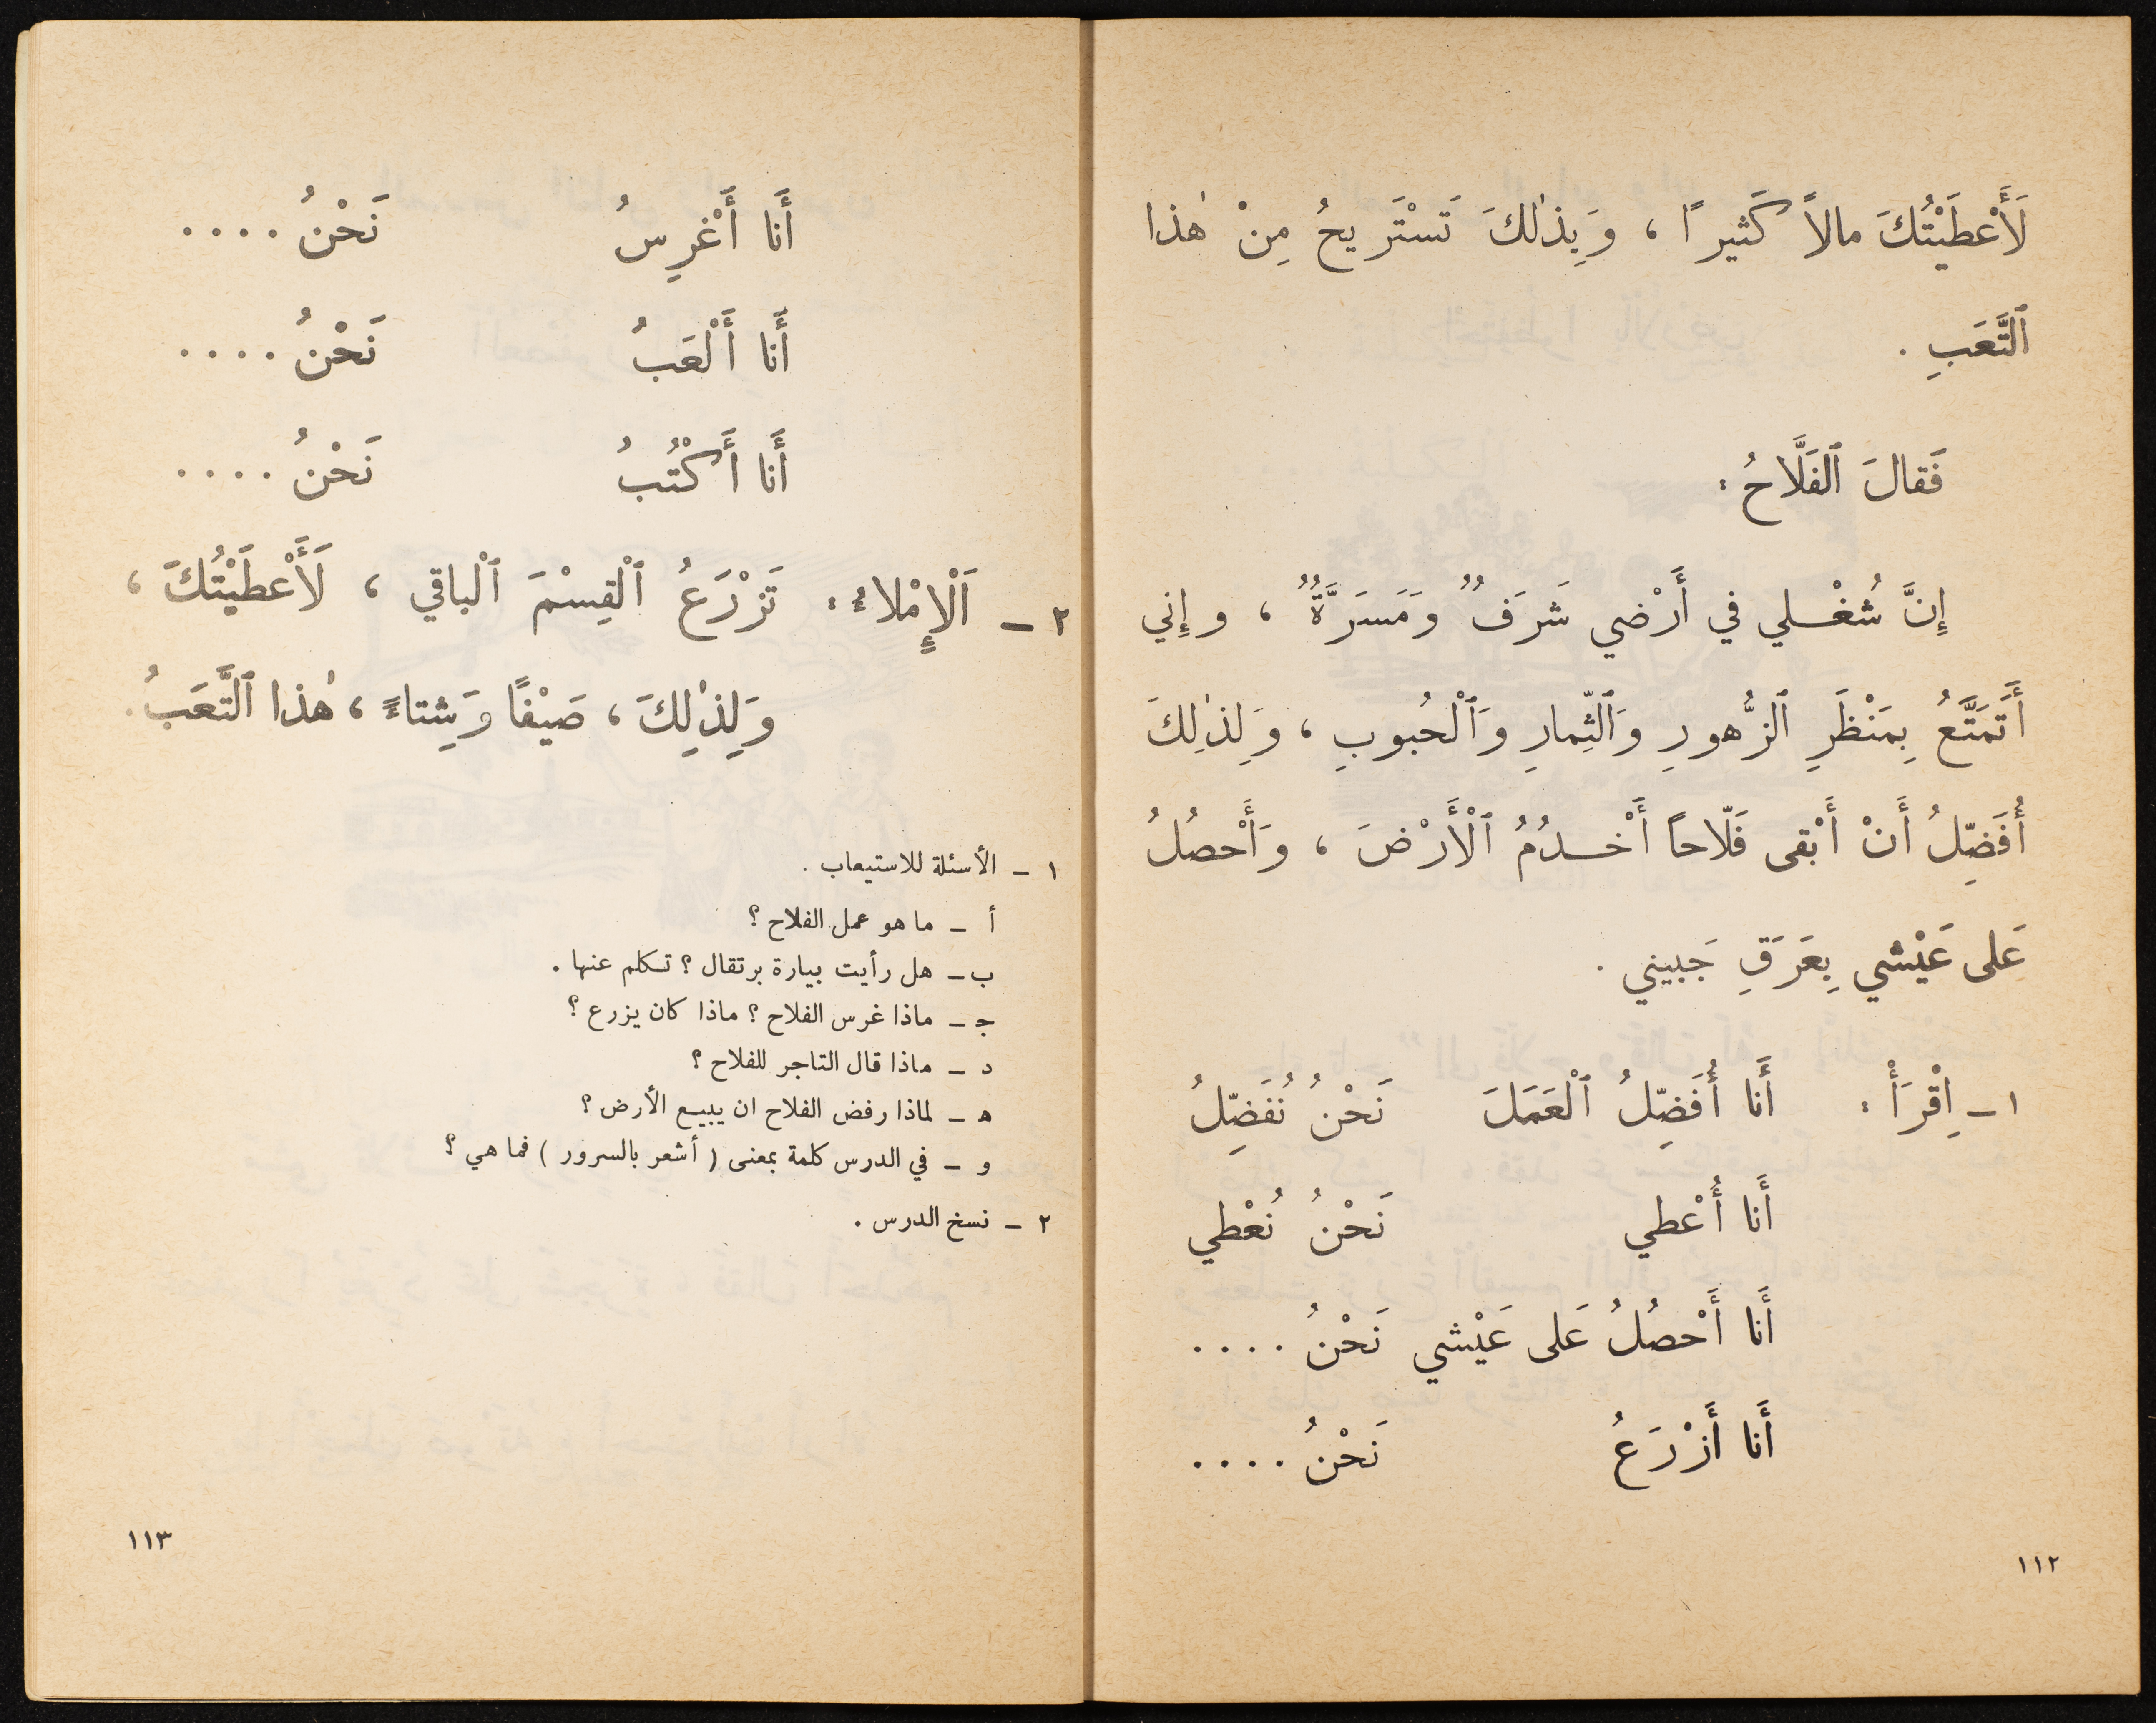 لَأَعْطَيْتُكَ مالاً كَثيراً ، وَبِذٰلكَ تَسْتَريحُ مِنْ هٰذا
ٱلتَّعَبِ .
فَقالَ ٱلفَلَّاحُ :
إِنَّ شُغْلي في أَرْضي شَرَفٌ وَمَسَرَّةٌ ، وإِني
أَتَمَتَّعُ بِمَنْظَرِ ٱلزُّهورِ وَٱلثِّمارِ وَٱلْحُبوبِ ، وَلِذٰلِكَ
أُفَضِّلُ أَنْ أَبْقى فَلّاحاً أَخْدُمُ ٱلْأَرْضَ ، وَأَحْصُلُ
عَلى عَيْشي بِعَرَقِ جَبيني .
١ – اِقْرَأْ : أَنا أُفَضِّلُ ٱلْعَمَلَ نَحْنُ نُفَضِّلُ
أَنا أُعْطي نَحْنُ نُعْطي
أَنا أَحْصُلُ عَلى عَيْشي نَحْنُ ....
أَنا أَزْرَعُ نَحْنُ ....
١١٢
أَنا أَغْرِسُ نَحْنُ ....
أَنا أَلْعَبُ نَحْنُ ....
أَنا أَكْتُبُ نَحْنُ ....
٢ – اَلْإِمْلاءُ : تَزْرَعُ ٱلْقِسْمَ ٱلْباقي ، لَأَعْطَيْتُكَ ،
وَلِذٰلِكَ ، صَيْفًا وَشِتاءً ، هٰذا ٱلتَّعَبُ .
١ – الأسئلة للاستيعاب .
أ – ما هو عمل الفلاح ؟
ب – هل رأيت بيارة برتقال ؟ تكلم عنها .
جـ – ماذا غرس الفلاح ؟ ماذا كان يزرع ؟
د – ماذا قال التاجر للفلاح ؟
هـ – لماذا رفض الفلاح ان يبيع الأرض ؟
و – في الدرس كلمة بمعنى ( أشعر بالسرور ) فما هي ؟
٢ – نسخ الدرس .
١١٣